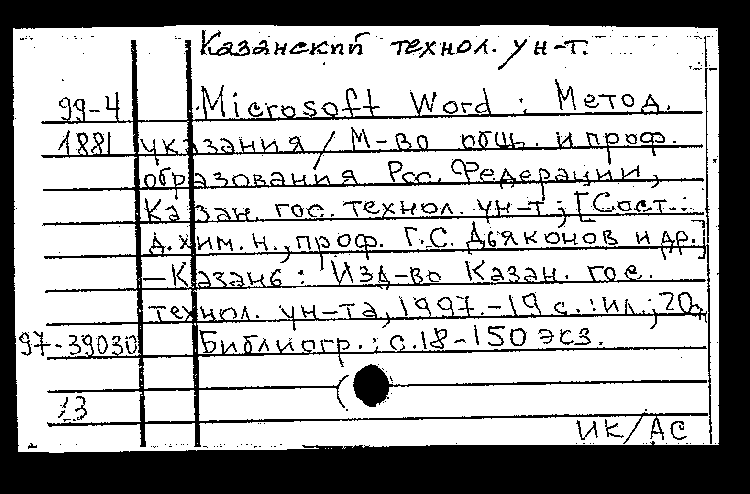 Казанский технол. ун-т.
99-4 Microsoft Word : Метод.
1881 указания / М-во общ. и проф.
образования Рос. Федерации,
Казан. гос. технол. ун-т ; [Сост.:
д.хим.н., проф. Г.С. Дьяконов и др.]
—Казань : Изд-во Казан. гос.
технол. ун-та, 1997.-19 с. :ил.; 20
97-39030 Библиогр.: с.18-150 экз.
13
ИК/АС